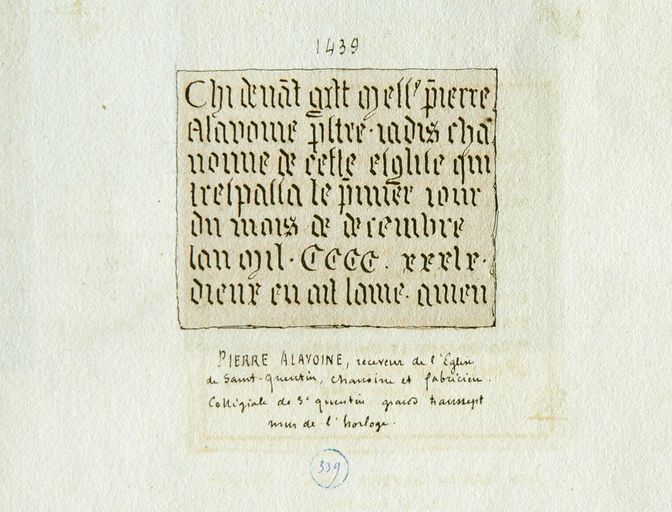 1439
Chi devāt gist messᵉ p̄ierre
Alavoine p̄bstre · iadis cha
noinne de ceste esglise qui
trespassa le p̄mier iour
du mois de decembre
lan mil · CCCC · xxxix ·
dieux en ait lame · amen
PIERRE ALAVOINE, receveur de l'Eglise
de Saint-Quentin, chanoine et fabricien.
Collégiale de Sᵗ quentin grand transept
mur de l'horloge.
339